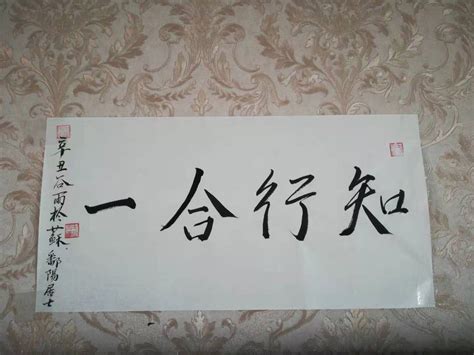 知行合一
辛丑谷雨於蘇鄱陽居士